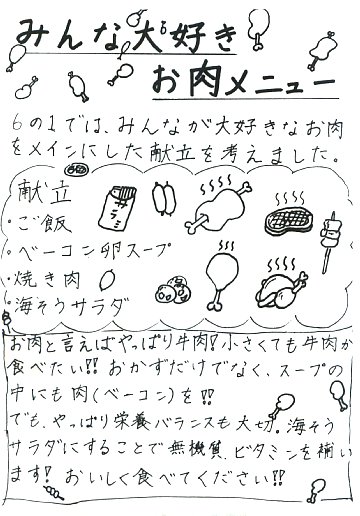 みんな大好き
お肉メニュー
6の1では、みんなが大好きなお肉
をメインにした献立を考えました。
献立
・ご飯
・ベーコン卵スープ
・焼き肉
・海そうサラダ
サラミ
お肉と言えばやっぱり牛肉!小さくても牛肉が
食べたい!!おかずだけでなく、スープの
中にも肉(ベーコン)を!!
でも、やっぱり栄養バランスも大切。海そう
サラダにすることで無機質、ビタミンを補い
ます!おいしく食べてください!!